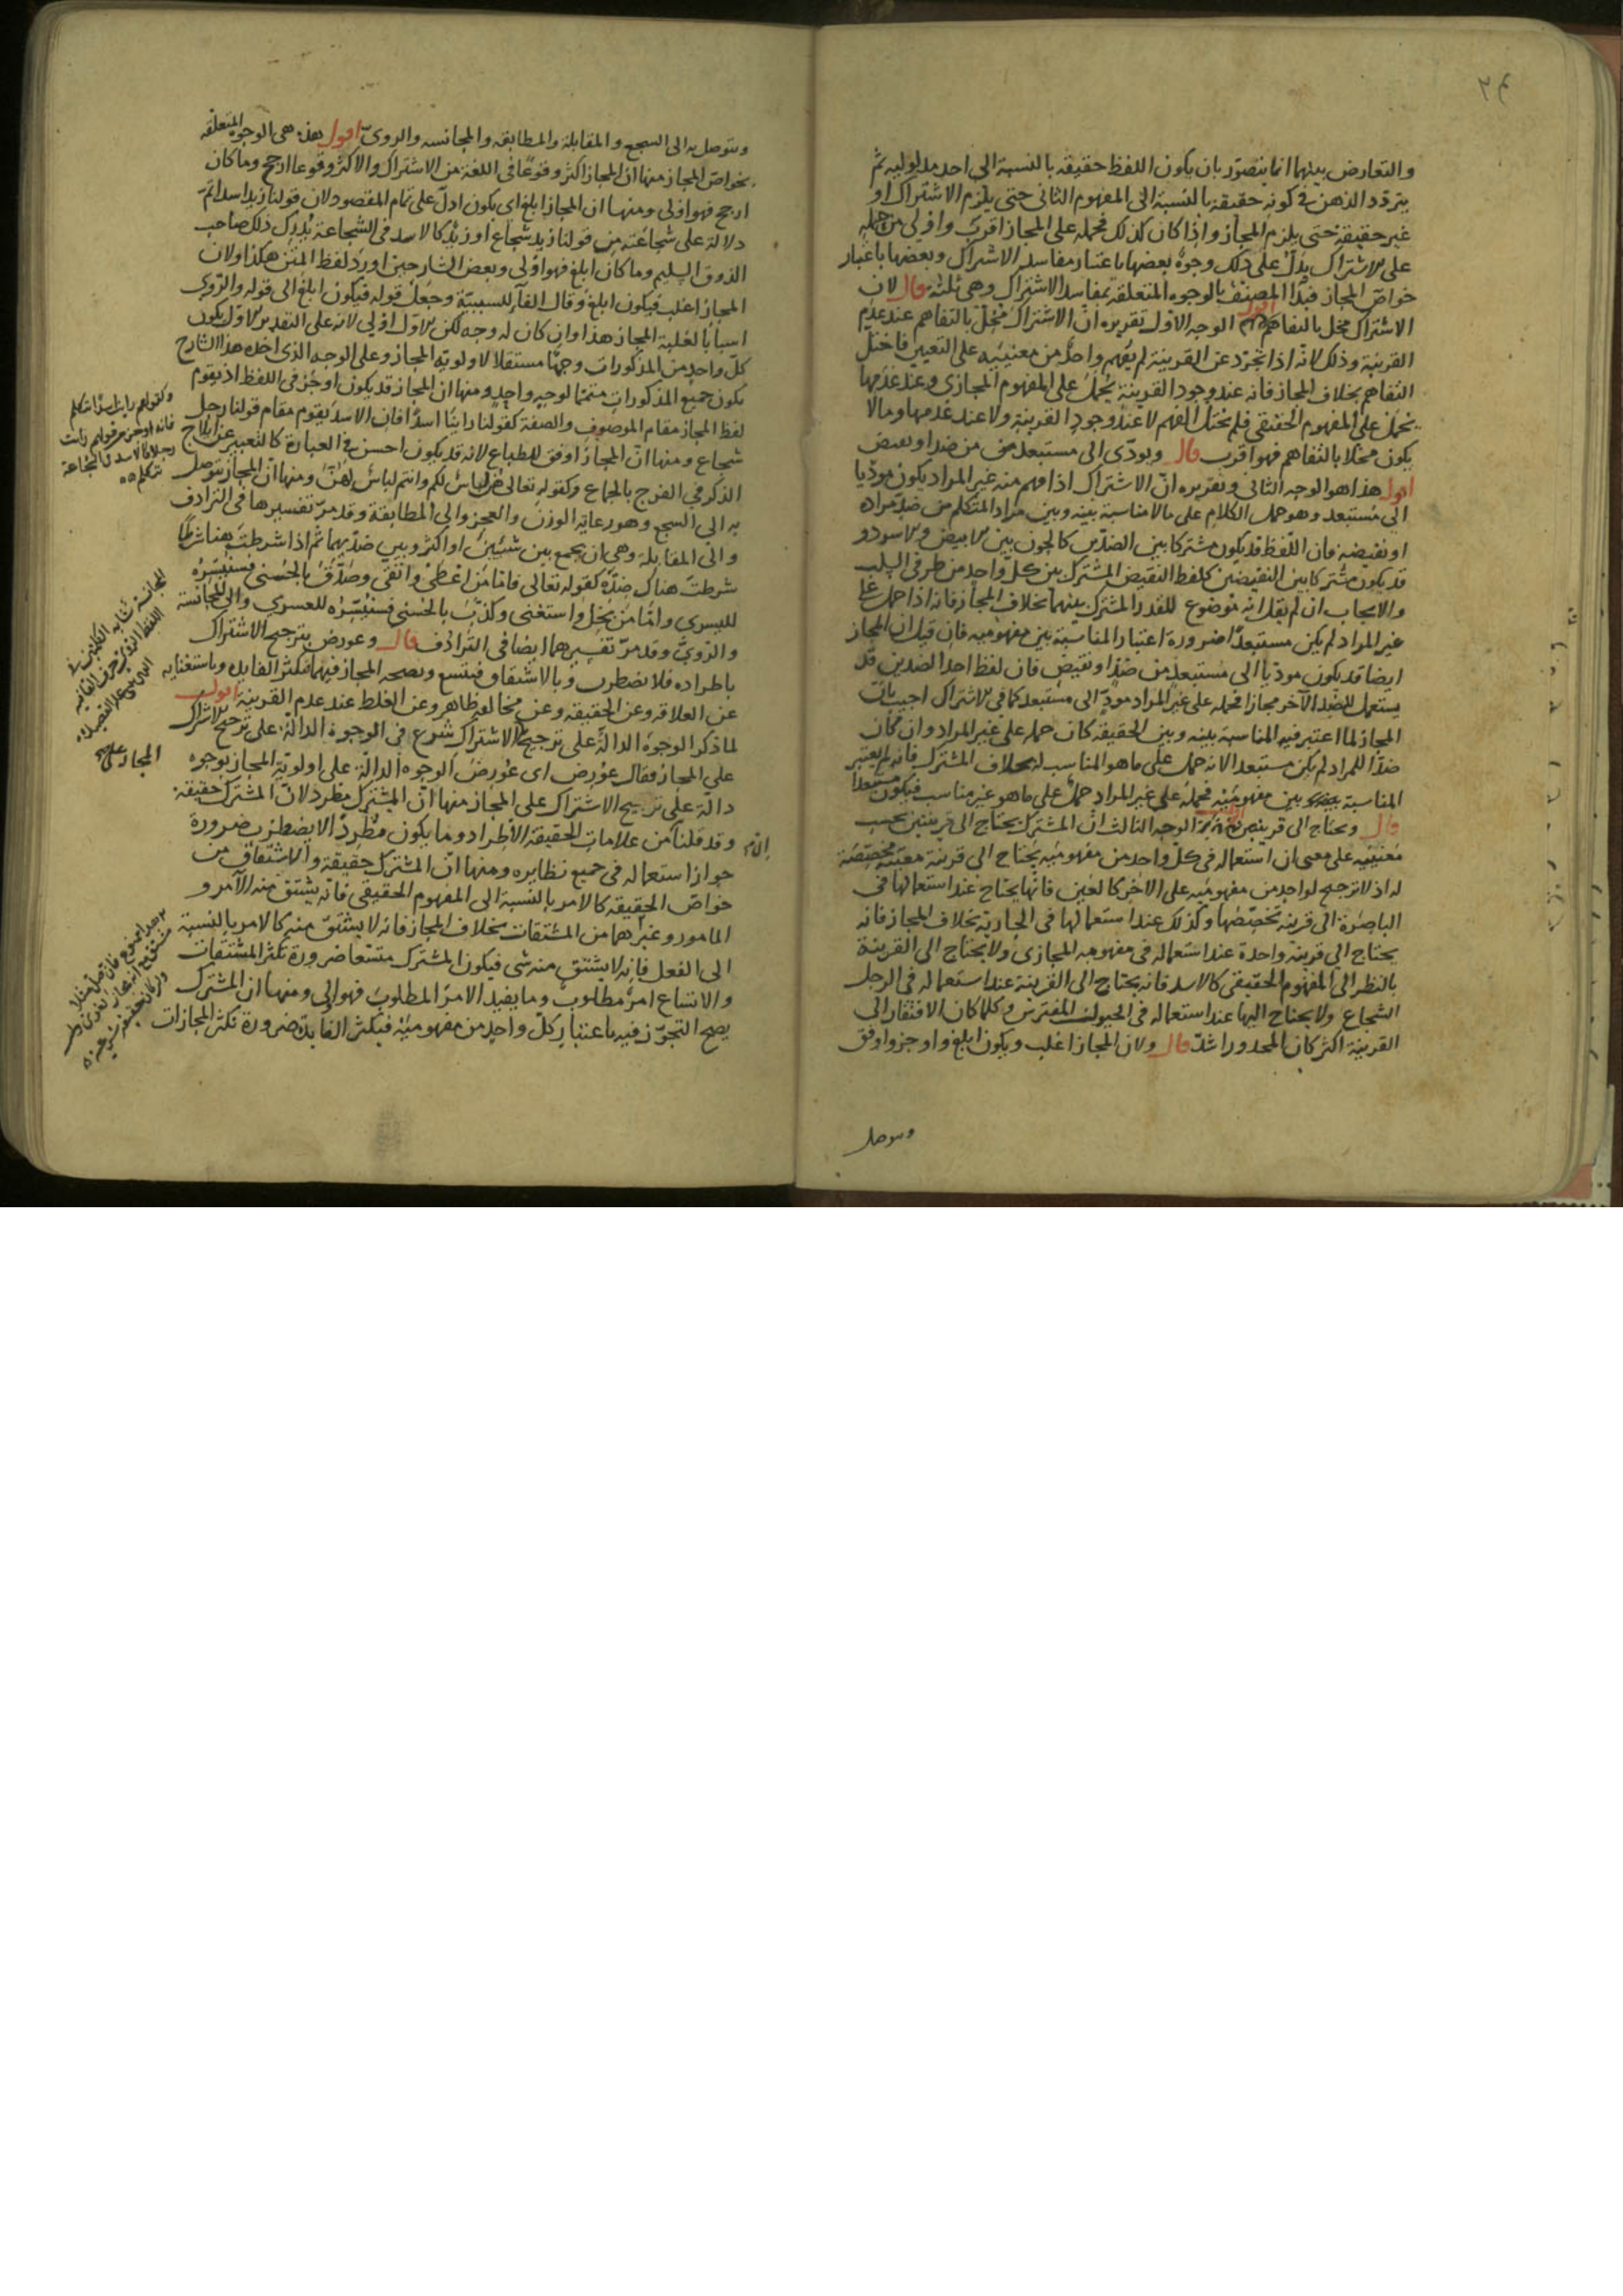 والتعارض بينهما انما يتصور بان يكون اللفظ حقيقة بالنسبة الى احد مدلوليه ثم
يتردد الذهن في كونه حقيقة بالنسبة الى المفهوم الثانى حتى يلزم الاشتراك او
غير حقيقة حتى يلزم المجاز واذا كان كذلك فحمله على المجاز اقرب واولى من حمله
على الاشتراك يدل على ذلك وجوه بعضها باعتبار مفاسد الاشتراك وبعضها باعتبار
خواص المجاز فبدا المصنف بالوجوه المتعلقة بمفاسد الاشتراك وهى ثلثة قال لان
الاشتراك مخل بالتفاهم اقول الوجه الاول تقريره ان الاشتراك مخل بالتفاهم عند عدم
القرينة وذلك لانه اذا تجرد عن القرينة لم يفهم واحد من معنييه على التعيين فاختل
التفاهم بخلاف المجاز فانه عند وجود القرينة يحمل على المفهوم المجازى وعند عدمها
يحمل على المفهوم الحقيقى فلم يختل الفهم لا عند وجود القرينة ولا عند عدمها وما لا
يكون مخلا بالتفاهم فهو اقرب قال ويودى الى مستبعد من ضد او نقيض
اقول هذا هو الوجه الثانى وتقريره ان الاشتراك اذا فهم منه غير المراد يكون موديا
الى مستبعد وهو حمل الكلام على ما لا مناسبة بينه وبين مراد المتكلم من ضد مراده
او نقيضه فان اللفظ قد يكون مشتركا بين الضدين كالجون بين الابيض والاسود و
قد يكون مشتركا بين النقيضين كلفظ النقيض المشترك بين كل واحد من طرفى السلب
والايجاب ان لم يقل انه موضوع للقدر المشترك بينهما بخلاف المجاز فانه اذا حمل على
غير المراد لم يكن مستبعدا ضرورة اعتبار المناسبة بين مفهوميه فان قيل ان المجاز
ايضا قد يكون موديا الى مستبعد من ضد او نقيض فان لفظ احد الضدين قد
يستعمل للضد الآخر مجازا فحمله على غير المراد مودٍّ الى مستبعد كما فى الاشتراك اجيب بان
المجاز لما اعتبر فيه المناسبة بينه وبين الحقيقة كان حمله على غير المراد وان كان
ضدا للمراد لم يكن مستبعدا لانه حمل على ما هو المناسب له بخلاف المشترك فانه لم يعتبر
المناسبة بين مفهوميه فحمله على غير المراد حمل على ما هو غير مناسب فيكون مستبعدا
قال ويحتاج الى قرينتين اقول الوجه الثالث ان المشترك يحتاج الى قرينتين بحسب
معنييه على معنى ان استعماله فى كل واحد من مفهوميه يحتاج الى قرينة معينة مخصصة
له اذ لا ترجيح لواحد من مفهوميه على الاخر كالعين فانها يحتاج عند استعمالها فى
الباصرة الى قرينة تخصصها وكذلك عند استعمالها فى الجارية بخلاف المجاز فانه
يحتاج الى قرينة واحدة عند استعماله فى مفهومه المجازى ولا يحتاج الى القرينة
بالنظر الى المفهوم الحقيقى كالاسد فانه يحتاج الى القرينة عند استعماله فى الرجل
الشجاع ولا يحتاج اليها عند استعماله فى الحيوان المفترس وكلما كان الافتقار الى
القرينة اكثر كان المحذور اشد قال ولان المجاز اغلب ويكون ابلغ واوجز واوفق
ويتوصل
ويتوصل به الى السجع والمقابلة والمطابقة والمجانسة والروى اقول هذه هى الوجوه المتعلقة
بخواص المجاز منها ان المجاز اكثر وقوعا فى اللغة من الاشتراك والاكثر وقوعا ارجح وما كان
ارجح فهو اولى ومنها ان المجاز ابلغ اى يكون ادل على تمام المقصود لان قولنا زيد اسد اتم
دلالة على شجاعته من قولنا زيد شجاع او زيد كالاسد فى الشجاعة يدرك ذلك صاحب
الذوق السليم وما كان ابلغ فهو اولى وبعض الشارحين اورد لفظ المتن هكذا ولان
المجاز اغلب فيكون ابلغ وقال الفاء للسببية وجعل قوله فيكون ابلغ الى قوله والروى
اسبابا لغلبة المجاز هذا وان كان له وجه لكن الاول اولى لانه على التقدير الاول يكون
كل واحد من المذكورات وجها مستقلا لاولوية المجاز وعلى الوجه الذى اخذه هذا الشارح
يكون جميع المذكورات متمما لوجه واحد ومنها ان المجاز قد يكون اوجز فى اللفظ اذ يقوم
لفظ المجاز مقام الموصوف والصفة كقولنا راينا اسدا فان الاسد يقوم مقام قولنا رجل
شجاع ومنها ان المجاز اوفق للطباع لانه قد يكون احسن فى العبارة كالتعبير عن ايلاج
الذكر فى الفرج بالجماع وكقوله تعالى هن لباس لكم وانتم لباس لهن ومنها ان المجاز يتوصل
به الى السجع وهو رعاية الوزن والعجز والى المطابقة وقد مر تفسيرها فى الترادف
والى المقابلة وهى ان يجمع بين شيئين او اكثر وبين ضديهما ثم اذا شرطت هنا شرطا
شرطت هناك ضده كقوله تعالى فاما من اعطى واتقى وصدق بالحسنى فسنيسره
لليسرى واما من بخل واستغنى وكذب بالحسنى فسنيسره للعسرى والى المجانسة
والروى وقد مر تفسيرهما ايضا فى الترادف قال وعورض بترجيح الاشتراك
باطراده فلا يضطرب وبالاشتقاق فيتسع وبصحة المجاز فيهما فتكثر الفايدة وباستغنايه
عن العلاقة وعن الحقيقة وعن مخالفة ظاهر وعن الغلط عند عدم القرينة اقول
لما ذكر الوجوه الدالة على ترجيح الاشتراك شرع فى الوجوه الدالة على ترجيح الاشتراك
على المجاز فقال عورض اى عورض الوجوه الدالة على اولوية المجاز بوجوه
دالة على ترجيح الاشتراك على المجاز منها ان المشترك مطرد لان المشترك حقيقة
وقد قلنا من علامات الحقيقة الاطراد وما يكون مطردا لا يضطرب ضرورة
جواز استعماله فى جميع نظايره ومنها ان المشترك حقيقة والاشتقاق من
خواص الحقيقة كالامر بالنسبة الى المفهوم الحقيقى فانه يشتق منه الآمر و
المامور وغيرهما من المشتقات بخلاف المجاز فانه لا يشتق منه كالامر بالنسبة
الى الفعل فانه لا يشتق منه شى فيكون المشترك متسعا ضرورة تكثر المشتقات
والاتساع امر مطلوب وما يفيد الامر المطلوب فهو اولى ومنها ان المشترك
يصح التجوز فيه باعتبار كل واحد من مفهوميه فيكثر الفايدة ضرورة تكثر المجازات